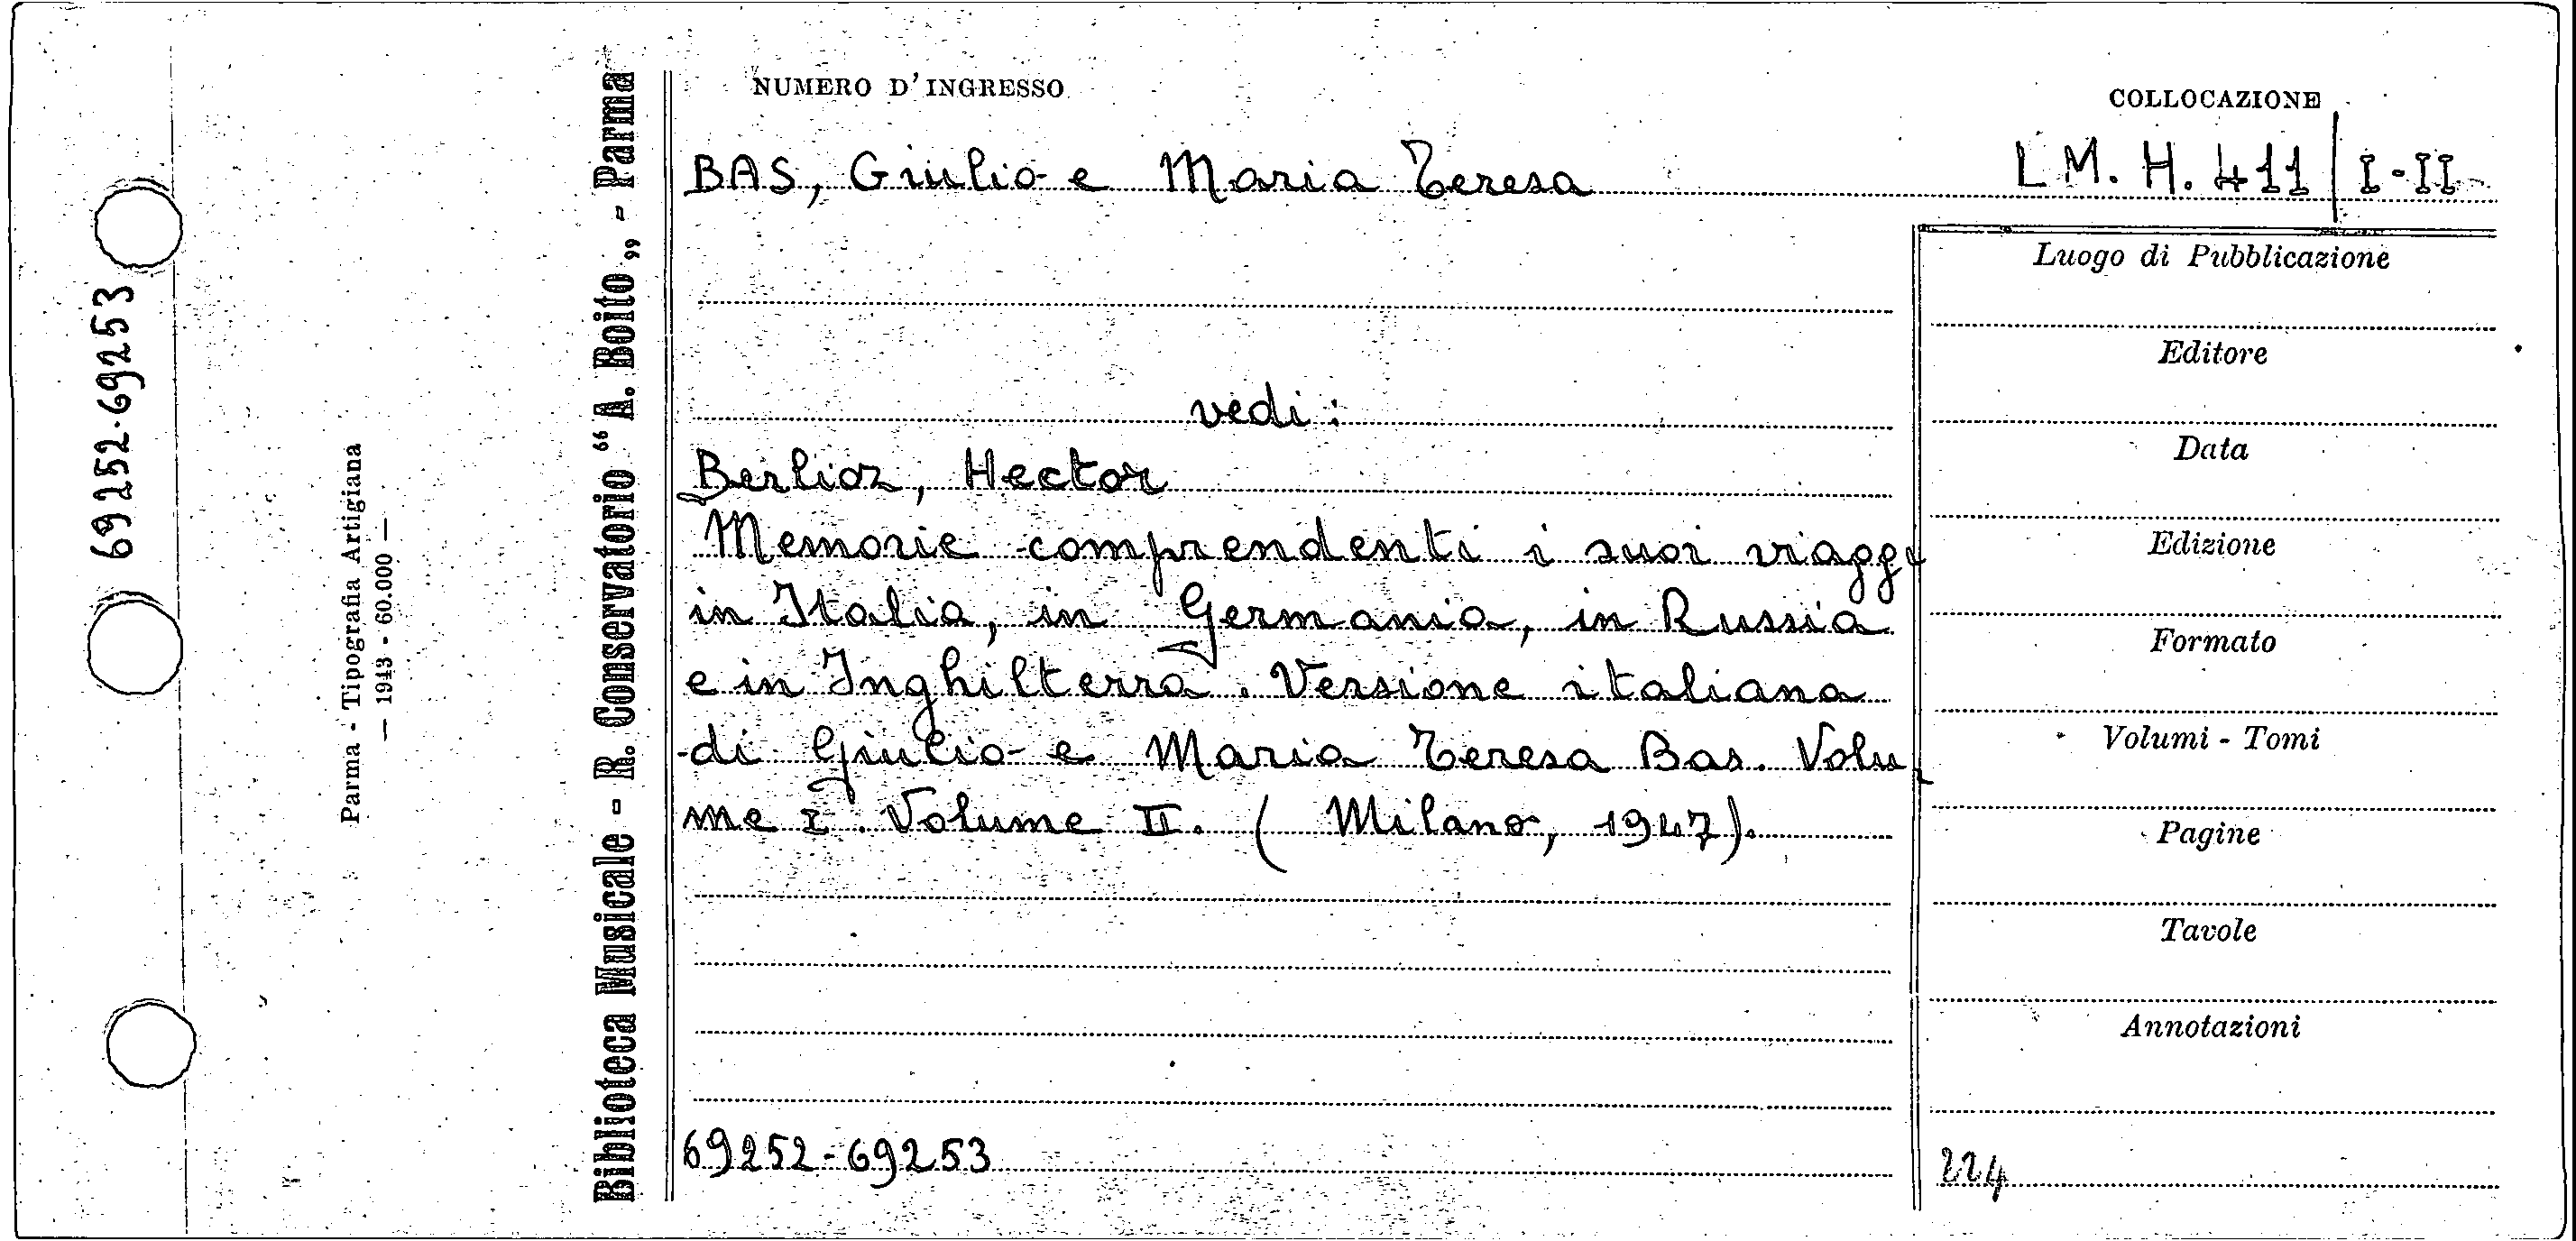 69252-69253
Parma - Tipografia Artigiana
— 1943 - 60.000 —
Biblioteca Musicale - R. Conservatorio “A. Boito„ - Parma
NUMERO D'INGRESSO
COLLOCAZIONE
BAS, Giulio e Maria Teresa
L M. H. 411 | I-II
vedi:
Berlioz, Hector
Memorie comprendenti i suoi viaggi
in Italia, in Germania, in Russia
e in Inghilterra. Versione italiana
di Giulio e Maria Teresa Bas. Volu-
me I. Volume II. (Milano, 1947).
69252-69253
Luogo di Pubblicazione
Editore
Data
Edizione
Formato
Volumi - Tomi
Pagine
Tavole
Annotazioni
224